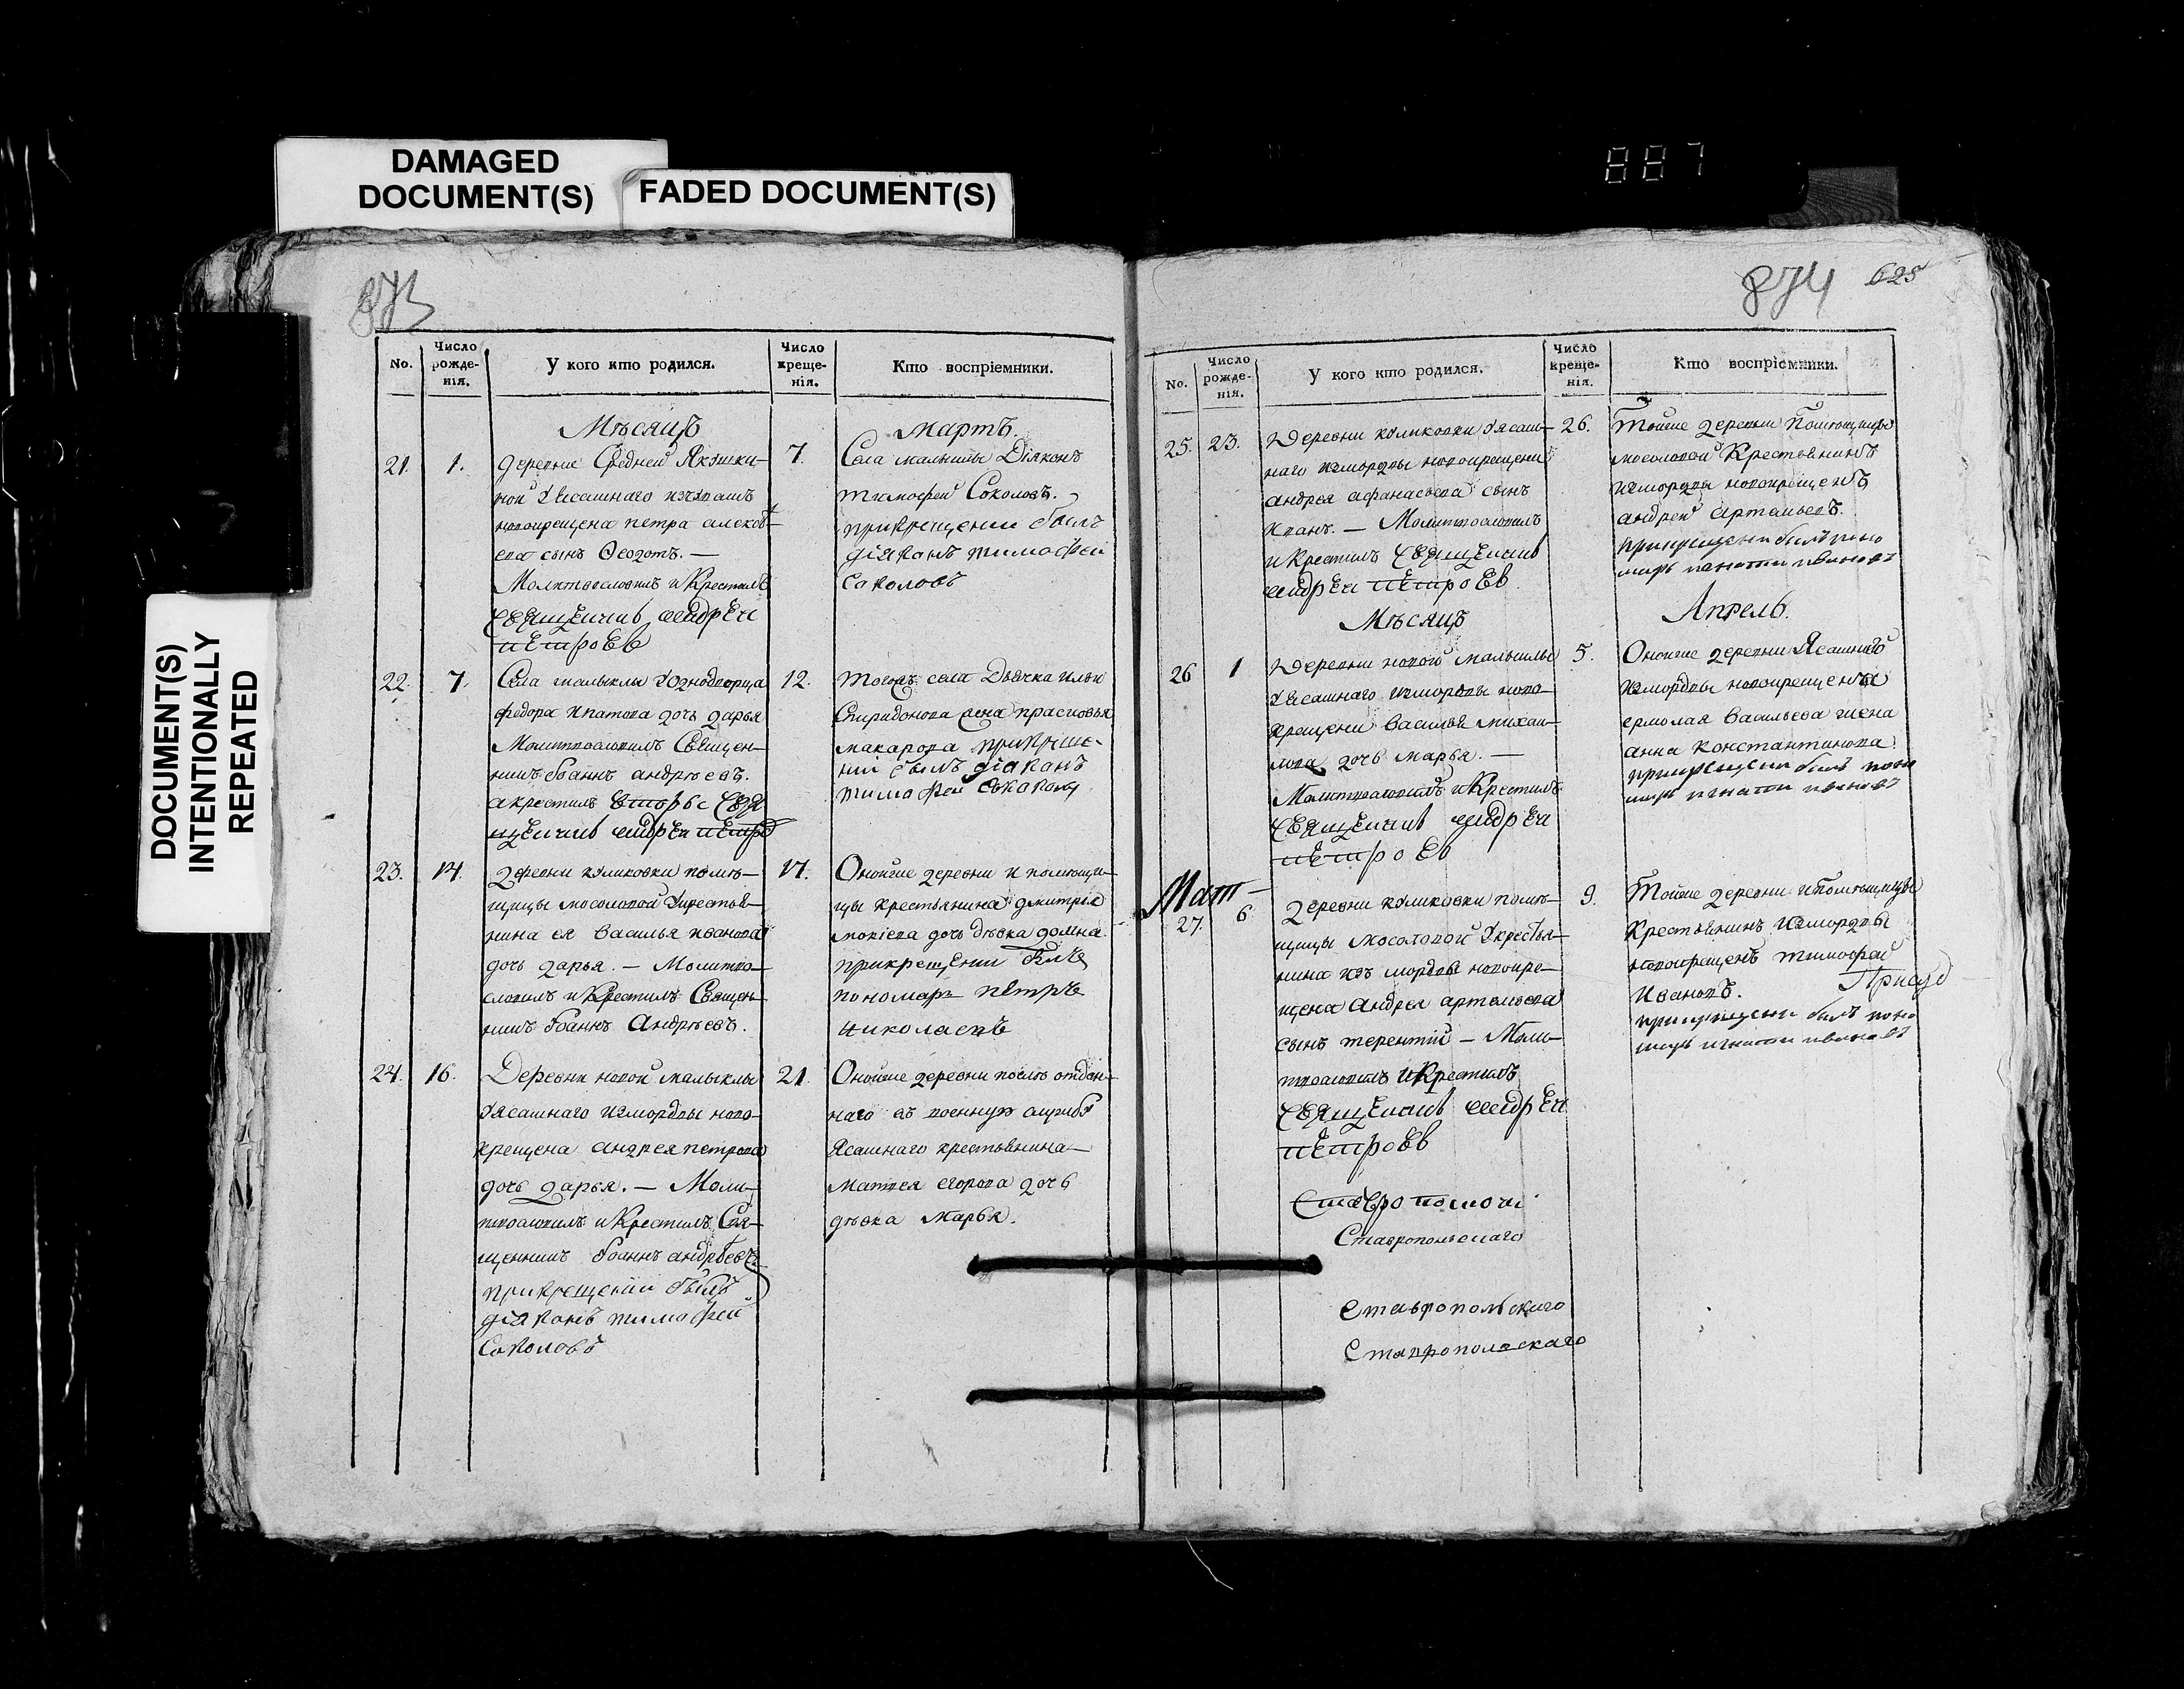 DAMAGED
DOCUMENT(S)
FADED DOCUMENT(S)
DOCUMENT(S)
INTENTIONALLY
REPEATED
887
873
No. Число рожде-нія. У кого кто родился. Число креще-нія. Кто воспріемники.
Мѣсяцъ Мартъ.
21. 1. деревне Средней Якушки-
ной Уясашнаго изчувашъ
новокрещена петра алексѣ-
ева сынъ Ѳедотъ. —
Молитвословилъ и Крестилъ
священникъ андреи
петровъ
7. Села малыклы Діяконъ
тимофей Соколовъ.
прикрещении былъ
діяконъ тимофеи
соколовъ
22. 7. Села малыклы Уоднодворца
федора ипатова дочь дарья
Молитвословилъ Священ-
никъ Іоаннъ андрѣевъ.
акрестилъ
священникъ андреи петро
12. тогожъ села Дьячка ильи
Спиридонова жена прасковья
макарова прикреще-
нии былъ діаконъ
тимофеи Соколовъ
23. 14. деревни куликовки помѣ-
щицы мосоловой Укрестья-
нина ея василья иванова
дочь дарья. — Молитво-
словилъ и Крестилъ Священ-
никъ Іоаннъ Андрѣевъ.
17. Онойже деревни и помѣщи-
цы крестьянина дмитрія
мокіева дочь дѣвка домна
прикрещении былъ
пономарь петръ
николаевъ
24. 16. Деревни новой малыклы
Уясашнаго измордвы ново-
крещена андрея петрова
дочь дарья. — Моли-
твословилъ и Крестилъ Свя-
щенникъ Іоаннъ андрѣевъ
прикрещении былъ
діяконъ тимофеи
Соколовъ
21. Онойже деревни послѣ отдан-
наго въ военную службу
Ясашнаго крестьянина
Матвея егорова дочь
дѣвка марья.
874 625
No. Число рожде-нія. У кого кто родился. Число креще-нія. Кто воспріемники.
25. 23. Деревни куликовки Уясаш-
наго измордвы новокрещена
андрея афанасьева сынъ
иванъ. — Молитвословилъ
и Крестилъ священникъ
андреи петровъ
26. Тойже деревни Помѣщицы
мосоловой Крестьянинъ
измордвы новокрещенъ
андрей артемьевъ.
прикрещении былъ поно
марь игнатий ивановъ
Мѣсяцъ Апрель.
26 1 Деревни новой малыклы
Уясашнаго измордвы ново-
крещена василья михаи-
лова дочь марья. —
Молитвословилъ и Крестилъ
священникъ андреи
петровъ
5. Онойже деревни Ясашнаго
измордвы новокрещена
ермолая васильева жена
анна константинова
прикрещении былъ поно
марь игнатий ивановъ
Мат
27. 6. деревни куликовки помѣ-
щицы мосоловой Укрестья-
нина изъ мордвы новокре-
щена андрея артемьева
сынъ терентій — Моли-
твословилъ и Крестилъ
священникъ андреи
петровъ
9. Тойже деревни и Помѣщицы
Крестьянинъ измордвы
новокрещенъ тимофей
Ивановъ.
прикрещении былъ поно
марь игнатий ивановъ
Ставропольскаго
Ставропольскаго
Ставропольскаго